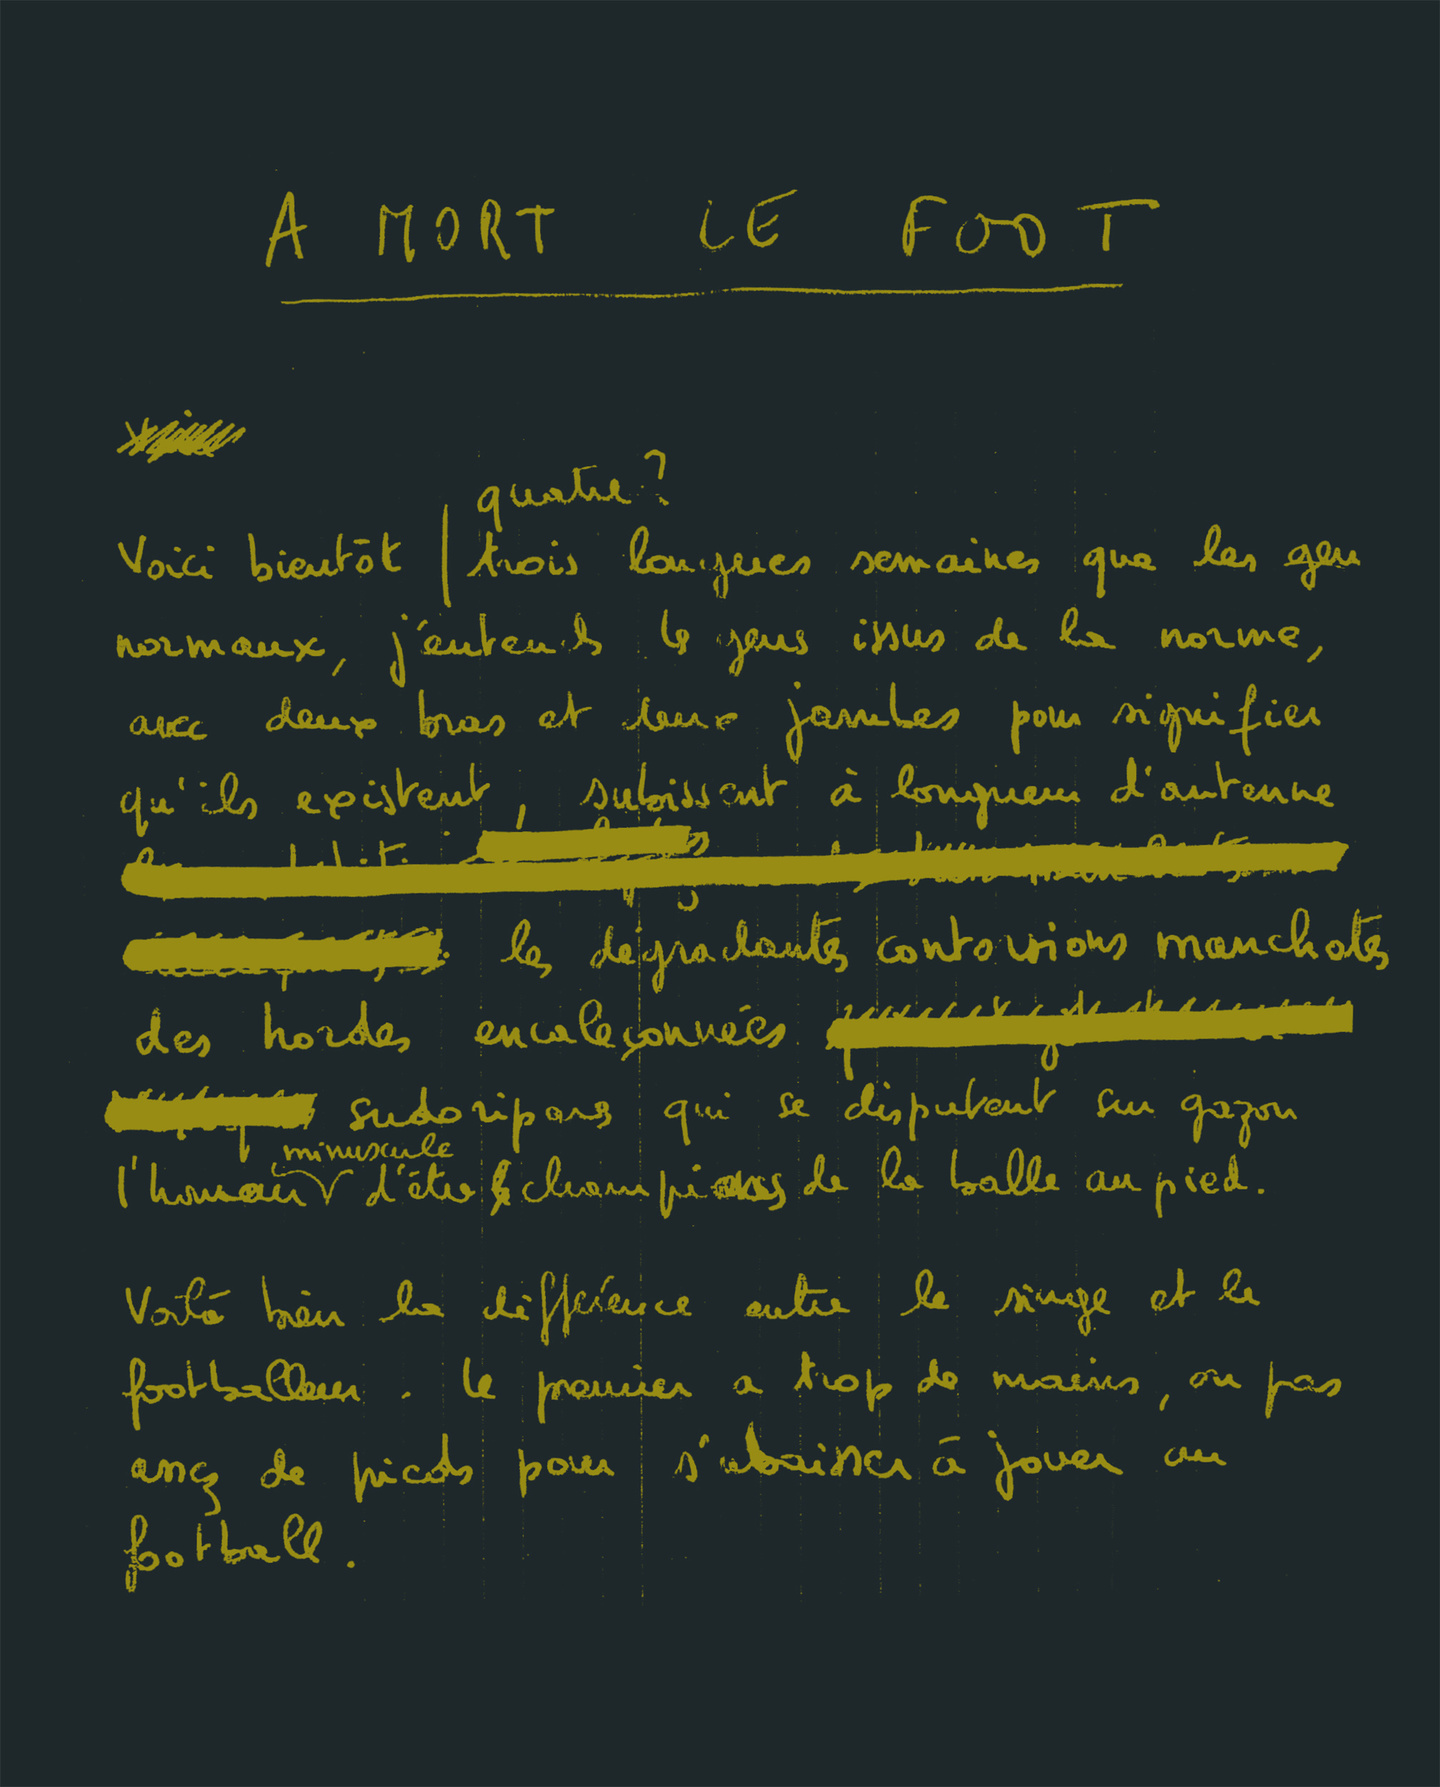 A MORT LE FOOT
quatre?
Voici bientôt | trois longues semaines que les gens
normaux, j'entends les gens issus de la norme,
avec deux bras et deux jambes pour signifier
qu'ils existent, subissent à longueur d'antenne
les dégradantes contorsions manchotes
des hordes encaleçonnées
sudoripares qui se disputent sur gazon
minuscule
l'honneur d'être champions de la balle au pied.
Voilà bien la différence entre le singe et le
footballeur. Le premier a trop de mains, ou pas
assez de pieds pour s'abaisser à jouer au
football.